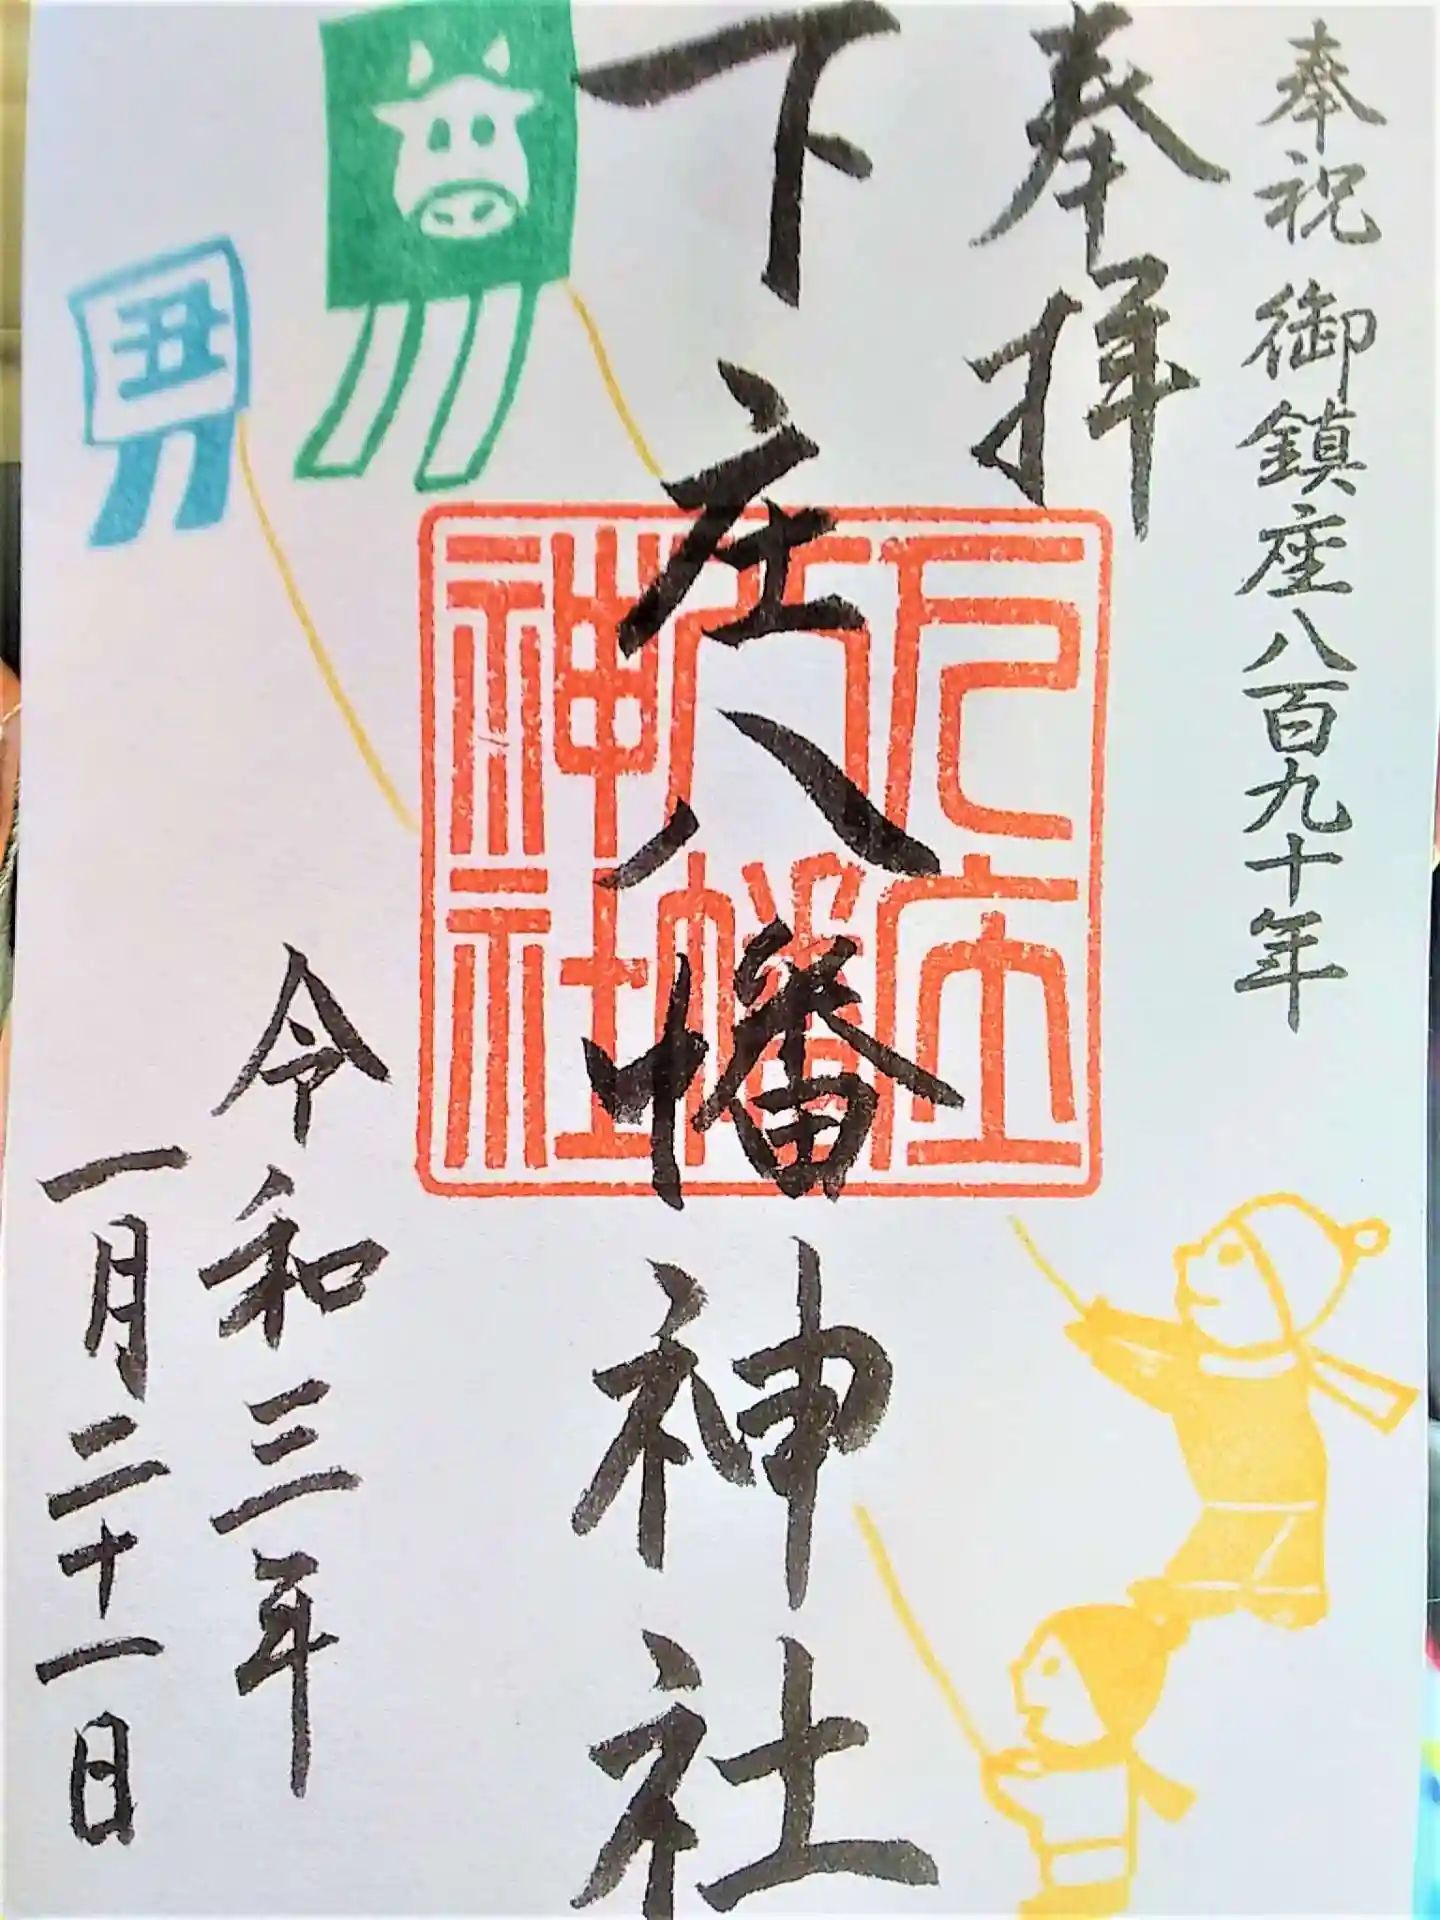 奉祝 御鎮座八百九十年
奉拝
下庄八幡神社
下庄
八幡
神社
令和三年
一月二十一日
丑